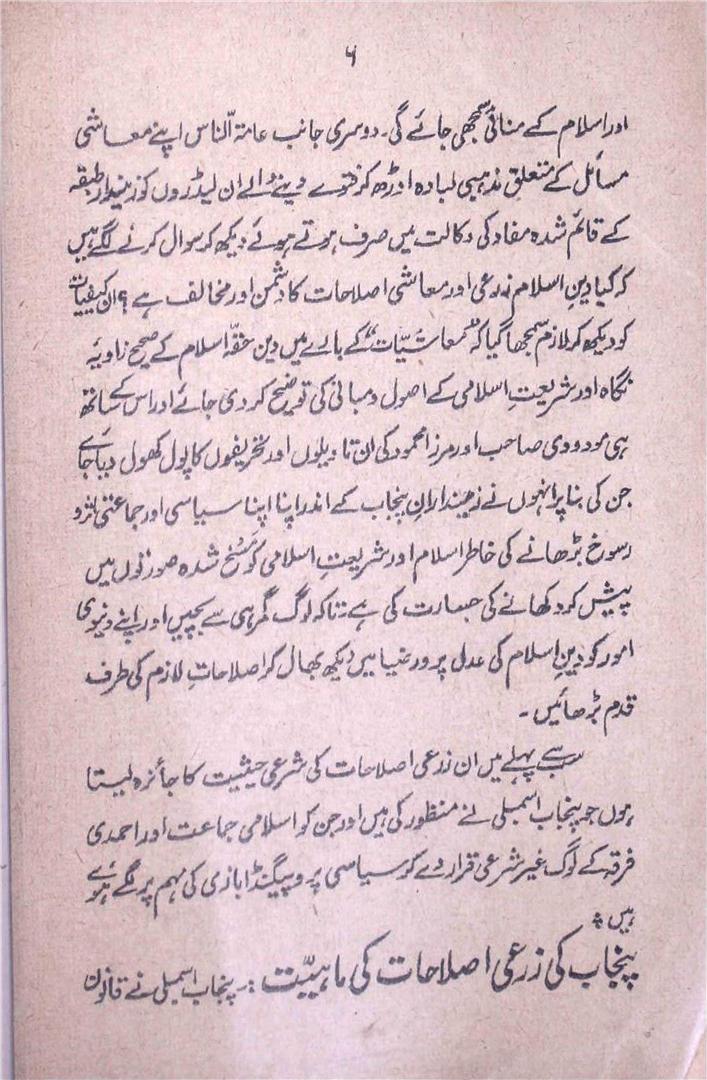 ۶
اور اسلام کے منافی سمجھی جائے گی۔ دوسری جانب عامۃ النّاس اپنے معاشی
مسائل کے متعلق مذہبی لبادہ اوڑھ کر فتوے دینے والے ان لیڈروں کو زمیندار طبقہ
کے قائم شدہ مفاد کی وکالت میں صرف ہوتے ہوئے دیکھ کر سوال کرنے لگے ہیں
کہ کیا دینِ اسلام زرعی اور معاشی اصلاحات کا دشمن اور مخالف ہے؟ ان کیفیات
کو دیکھ کر لازم سمجھا گیا کہ ”معاشیّات“ کے بارے میں دین حقّہ اسلام کے صحیح زاویۂ
نگاہ اور شریعتِ اسلامی کے اصول و مبانی کی توضیح کر دی جائے اور اس کے ساتھ
ہی مودودی صاحب اور مرزا محمود کی ان تاویلوں اور تحریفوں کا پول کھول دیا جائے
جن کی بنا پر انہوں نے زمیندارانِ پنجاب کے اندر اپنا اپنا سیاسی اور جماعتی اثر و
رسوخ بڑھانے کی خاطر اسلام اور شریعتِ اسلامی کو مسخ شدہ صورتوں میں
پیش کر دکھانے کی جسارت کی ہے۔ تاکہ لوگ گمرہی سے بچیں اور اپنے دنیوی
امور کو دینِ اسلام کی عدل پرور ضیا میں دیکھ بھال کر اصلاحاتِ لازم کی طرف
قدم بڑھائیں۔
سب سے پہلے میں ان زرعی اصلاحات کی شرعی حیثیت کا جائزہ لیتا
ہوں جو پنجاب اسمبلی نے منظور کی ہیں اور جن کو اسلامی جماعت اور احمدی
فرقہ کے لوگ غیر شرعی قرار دے کر سیاسی پروپیگنڈا بازی کی مہم پر لگے ہوئے
ہیں ۔
پنجاب کی زرعی اصلاحات کی ماہیّت :۔ پنجاب اسمبلی نے قانون